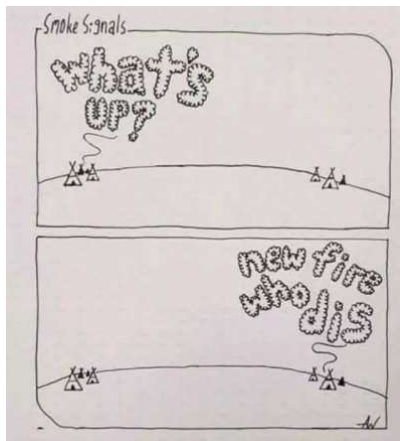 Smoke Signals
what's
UP?
new fire
who
dis
AW